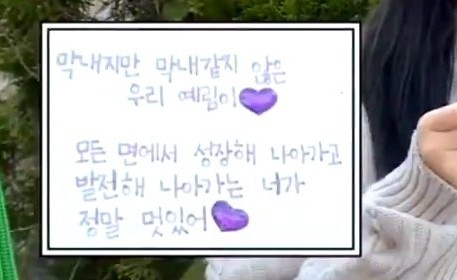 막내지만 막내같지 않은
우리 예림이💜
모든 면에서 성장해 나아가고
발전해 나아가는 너가
정말 멋있어💜